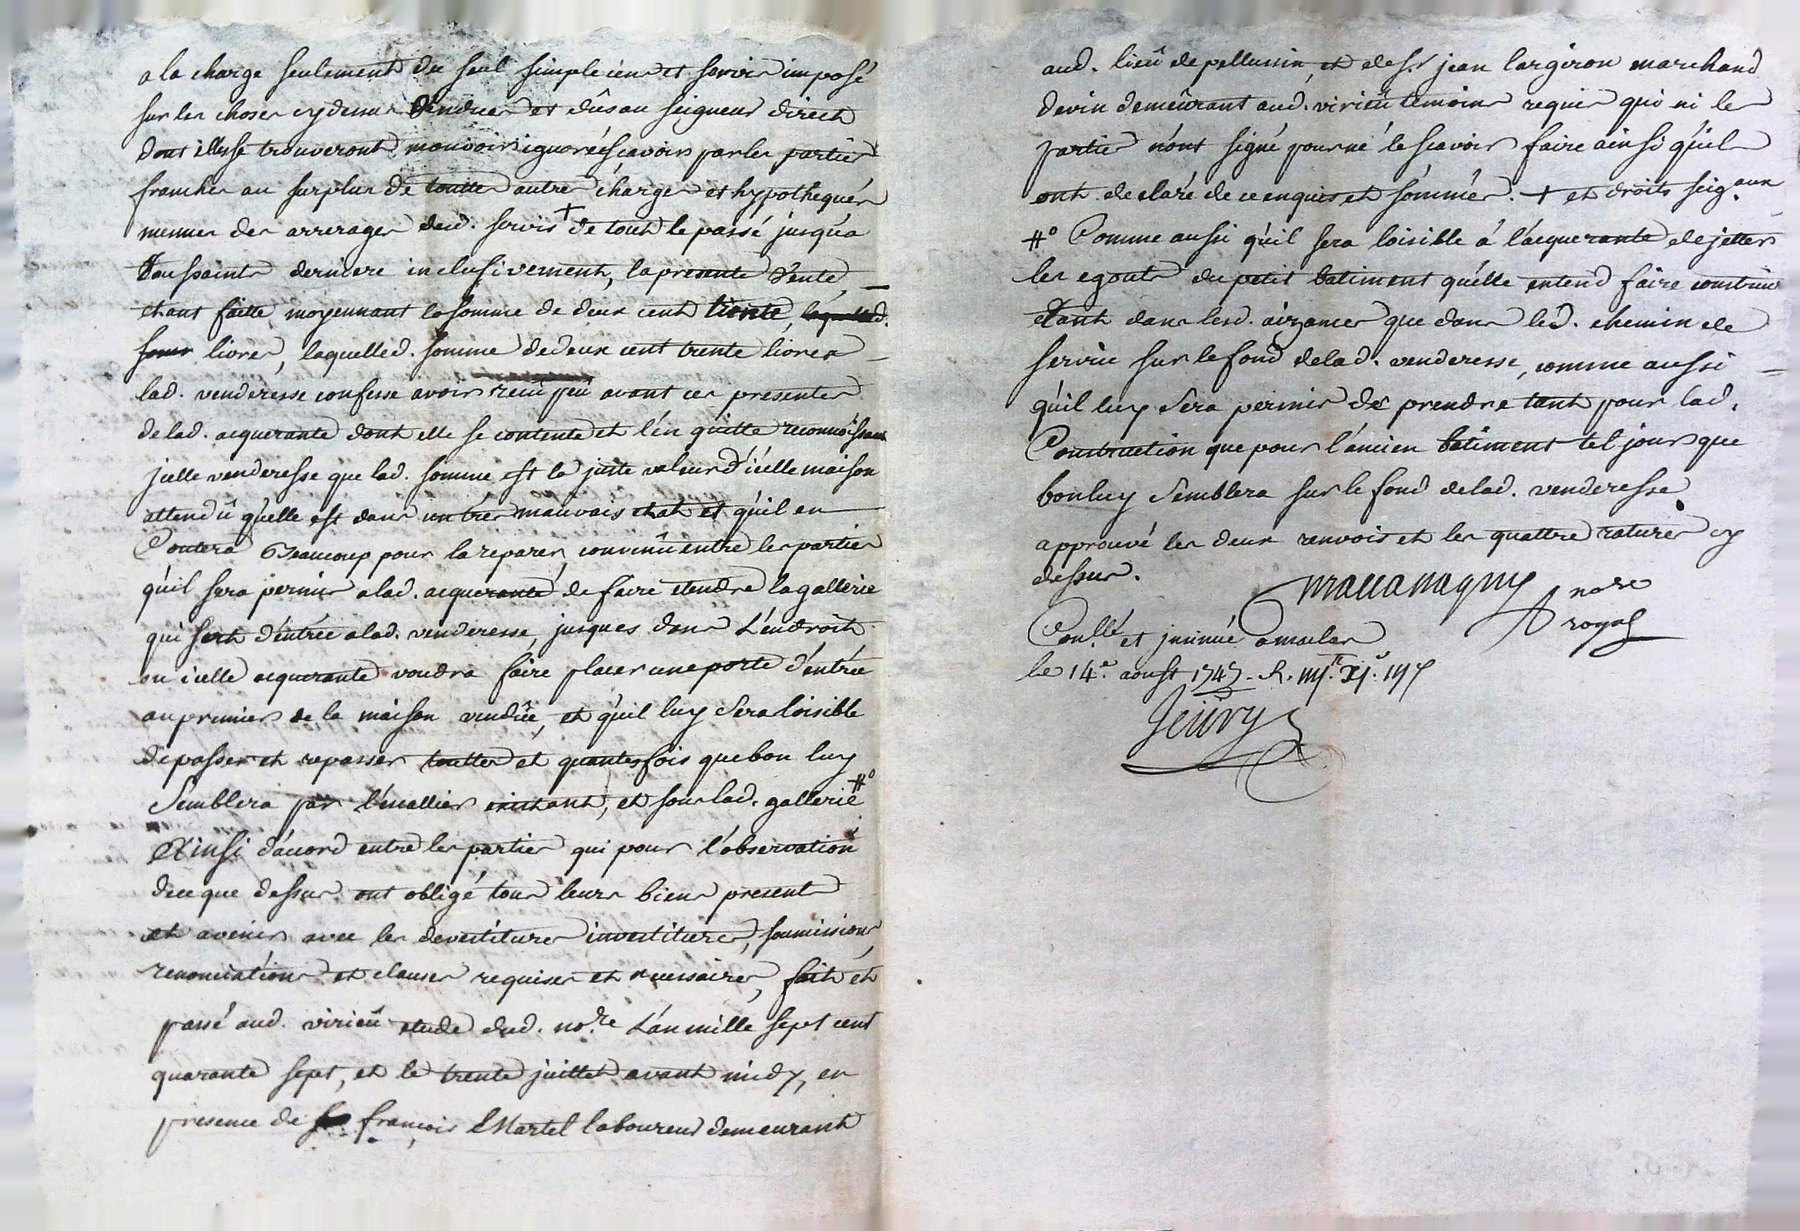 a la charge seulement du seul simple cens et servis imposé
sur les choses cydessus vendues et dûs au seigneur direct
dont elles se trouveront mouvoir ignorés scavoir par les parties
franches au surplus de toutte autre charges et hypothequés
mesmes des arrerages dud. servis + de tout le passé jusqu'a
toussaints derniere inclusivement, la presente vente,
etant faitte moyennant la somme de deux cent trente,
livres, laquelled. somme de deux cent trente livres
lad. venderesse confesse avoir reçu avant ces presentes
de lad. acquerante dont elle se contente et l'en quitte reconnoissant
jcelle venderesse que lad. somme est la juste valeur d'icelle maison
attendû qu'elle est dans un tres mauvais etat et qu'il en
Coutera Beaucoup pour la reparer, convenû entre les parties
qu'il sera permis a lad. acquerante de faire etendre la gallerie
qui sert d'entrée a lad. venderesse, jusques dans L'endroit
ou icelle acquerante voudra faire placer une porte d'entrée
au premier de la maison vendûe, et qu'il luy sera loisible
de passer et repasser touttes et quantes fois que bon luy
Semblera par l'escallier existant, et sur lad. gallerie #°
Ainsi d'acord entre les parties qui pour l'observation
de ce que dessus ont obligé tous leurs biens present
et avenir avec les devestitures investitures, soumissions
renonciations et clauses requises et necessaires, fait et
passé aud. virieû etude dud. no.re L'an mille sept cent
quarante sept, et le trente juillet avant midy, en
presence de françois Martel laboureur demeurant
aud. lieû de pellussin, et de s.r jean largiron marchand
de vin demeûrant aud. virieû temoins requis qui ni les
parties n'ont signé pour ne le scavoir faire ainsi qu'ils
ont declaré de ce enquis et sommés. + et droits seig.aux
#° Comme aussi qu'il sera loisible á l'acquerante de jetter
les egouts du petit batiment qu'elle entend faire construire
tant dans lesd. aizances que dans led. chemin de
service sur le fond de lad. venderesse, comme aussi
qu'il luy sera permis de prendre tant pour lad.
Construction que pour l'ancien batiment tel jours que
bon luy Semblera sur le fond de lad. venderesse
approuvé les deux renvois et les quattre ratures cy
dessus.
no.re
royal
Con.llé et jnsinué a maclas
le 14.e aoust 1747. R.